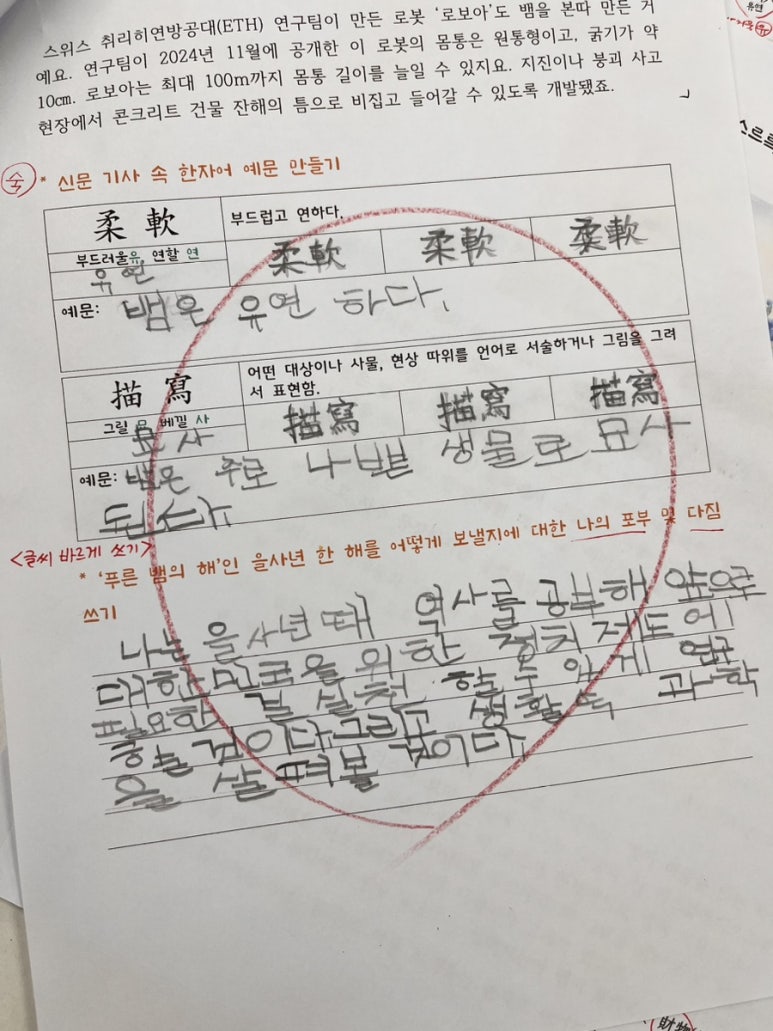 스위스 취리히연방공대(ETH) 연구팀이 만든 로봇 ‘로보아’도 뱀을 본따 만든 거
예요. 연구팀이 2024년 11월에 공개한 이 로봇의 몸통은 원통형이고, 굵기가 약
10㎝. 로보아는 최대 100m까지 몸통 길이를 늘일 수 있지요. 지진이나 붕괴 사고
현장에서 콘크리트 건물 잔해의 틈으로 비집고 들어갈 수 있도록 개발됐죠.
숙 * 신문 기사 속 한자어 예문 만들기
柔 軟
부드럽고 연하다.
부드러울유, 연할 연
유연
柔軟 柔軟 柔軟
예문: 뱀은 유연 하다.
描 寫
어떤 대상이나 사물, 현상 따위를 언어로 서술하거나 그림을 그려
서 표현함.
그릴 묘 베낄 사
묘사
描寫 描寫 描寫
예문: 뱀은 주로 나쁜 생물로 묘사
된다.
<글씨 바르게 쓰기>
* ‘푸른 뱀의 해’인 을사년 한 해를 어떻게 보낼지에 대한 나의 포부 및 다짐
쓰기
나는 을사년 때 역사를 공부해 앞으로
대한민국을 위한 정치 제도에
필요한 걸 실천 할 수 있게 연구
할 것이다 그리고 생활 속 과학
을 살펴볼 것이다.
유연
財物